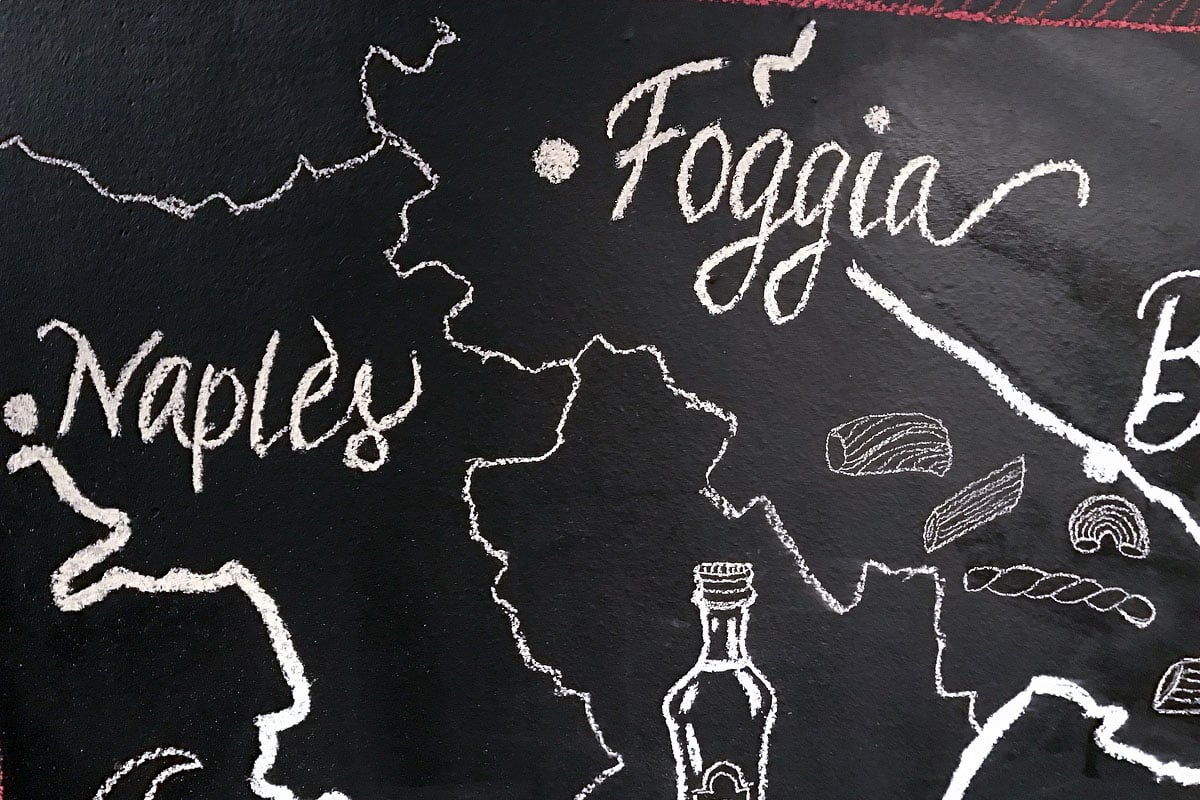 Foggia
Naples
B